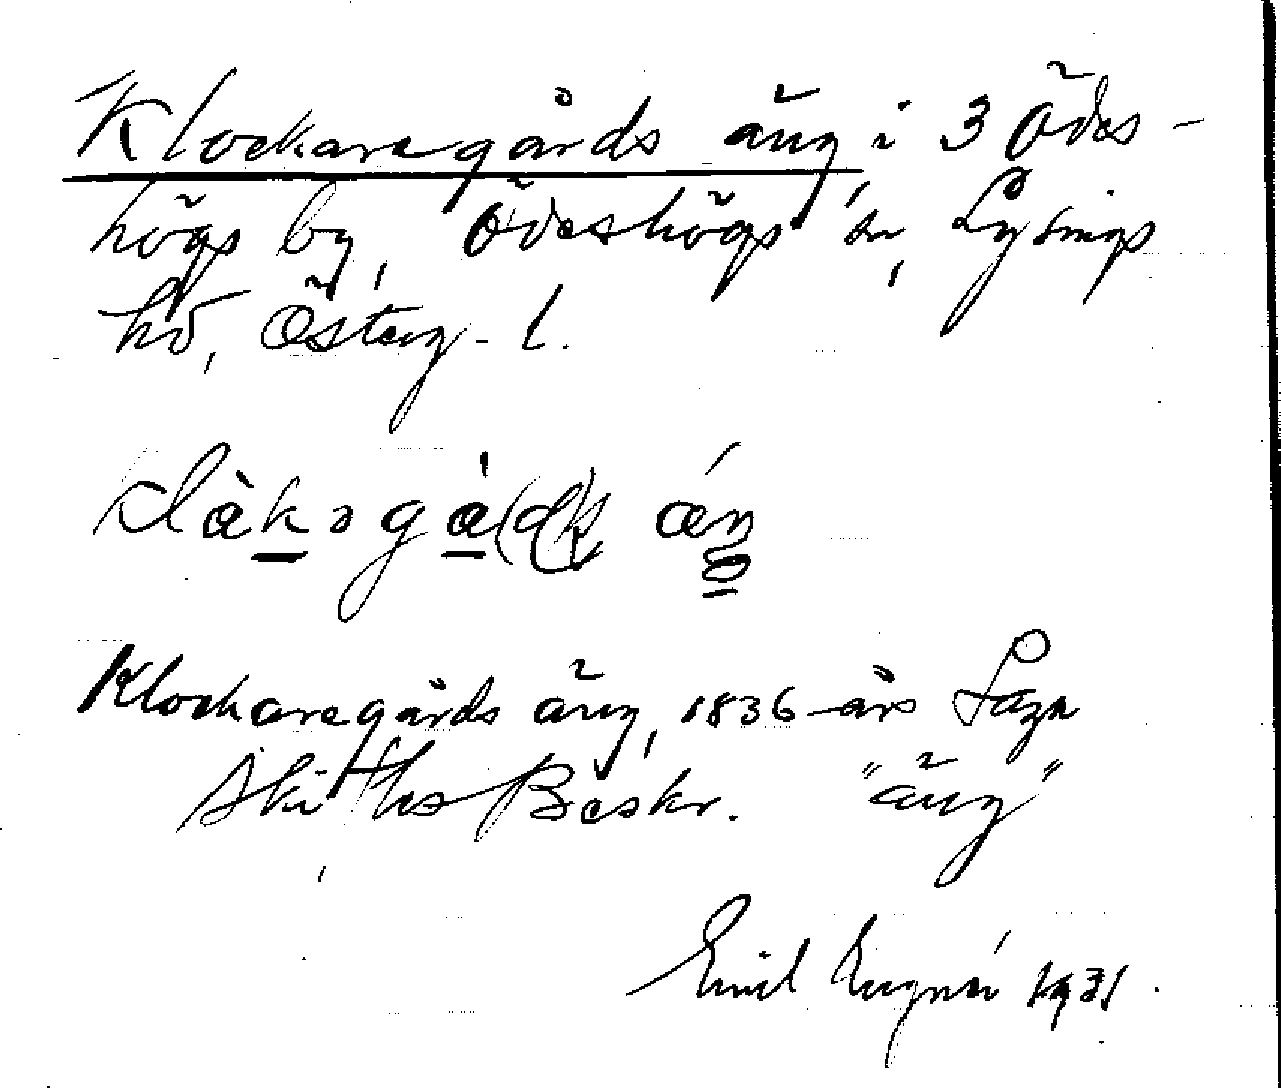 Klockaregårds äng i 3 Ödes-
högs by, Ödeshögs sn, Lysings
hd, Österg. l.
Klockaregårds äng, 1836 års Laga
Skiftes Beskr. "äng"
Emil 1931.